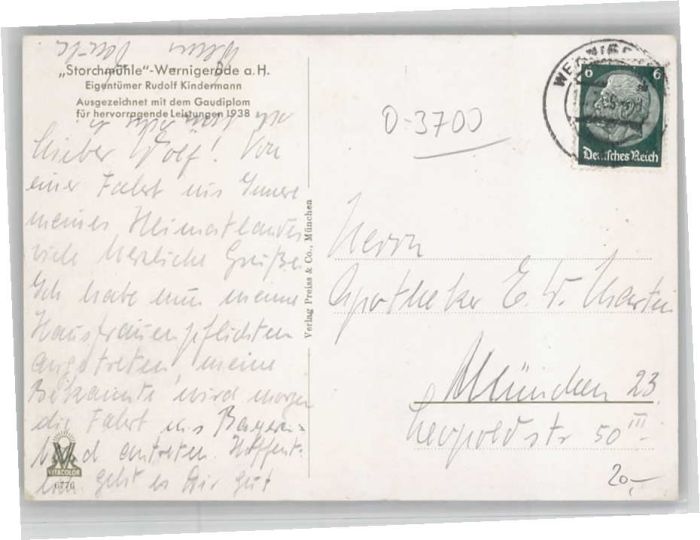 „Storchmühle"-Wernigerode a. H.
Eigentümer Rudolf Kindermann
Ausgezeichnet mit dem Gaudiplom
für hervorragende Leistungen 1938
Lieber Wolf! Von
einer Fahrt ins Innere
meines Heimatlandes
viele herzliche Grüße.
Ich habe nun meine
Hausfrauenpflichten
angetreten, meine
Bekannte wird morgen
die Fahrt ins Bayern-
land antreten. Hoffent-
lich geht es Dir gut
VITACOLOR
6776
Verlag Preiss & Co., München
D-3700
WERNIGE
6 6
Deutsches Reich
Herrn
Apotheker E. W. Martin
München 23
Leopoldstr 50 III
20,-